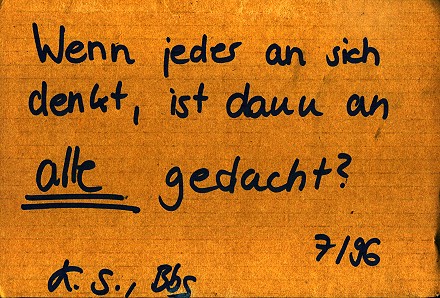 Wenn jeder an sich
denkt, ist dann an
alle gedacht?
7/96
K. S., Bbg